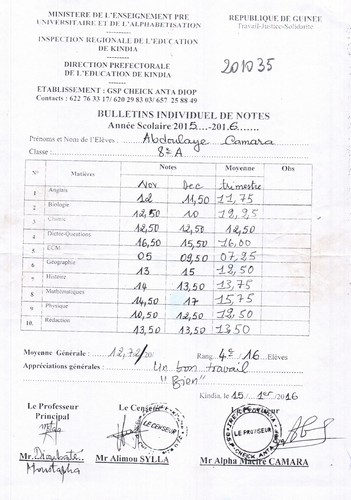 MINISTERE DE L'ENSEIGNEMENT PRE
UNIVERSITAIRE ET DE L'ALPHABETISATION
REPUBLIQUE DE GUINEE
Travail-Justice-Solidarite
INSPECTION REGIONALE DE L'EDUCATION
DE KINDIA
DIRECTION PREFECTORALE
DE L'EDUCATION DE KINDIA
201035
ETABLISSEMENT : GSP CHEICK ANTA DIOP
Contacts : 622 76 33 17/ 620 29 83 03/ 657 25 88 49
BULLETINS INDIVIDUEL DE NOTES
Année Scolaire 2015....-2016.......
Prénoms et Nom de l'Elèves : Abdoulaye Camara
Classe : 8e A
N° Matières Notes Moyenne Obs
Nov Dec trimestre
1 Anglais 12 11,50 11,75
2 Biologie 12,50 10
3 Chimie 12,50 12,50 12,50
4 Dictée-Questions 16,50 15,50 16,00
5 ECM 05 09,50 07,25
6 Géographie 13 15
7 Histoire 14 13,50 13,75
8 Mathématiques 14,50 17 15,75
9 Physique 10,50 12,50
10. Rédaction 13,50 13,50 13,50
Moyenne Générale : 12,72/20 Rang 4e /16 Elèves
Appréciations générales : Un bon travail
"Bien"
Kindia, le 15 / 1er /2016
Le Professeur
Principal
Le Censeur
Le Proviseur
LE CENSEUR
LE PROVISEUR
CHECK ANTA
Mr. Dioubaté
Moustapha
Mr Alimou SYLLA
Mr Alpha Macire CAMARA